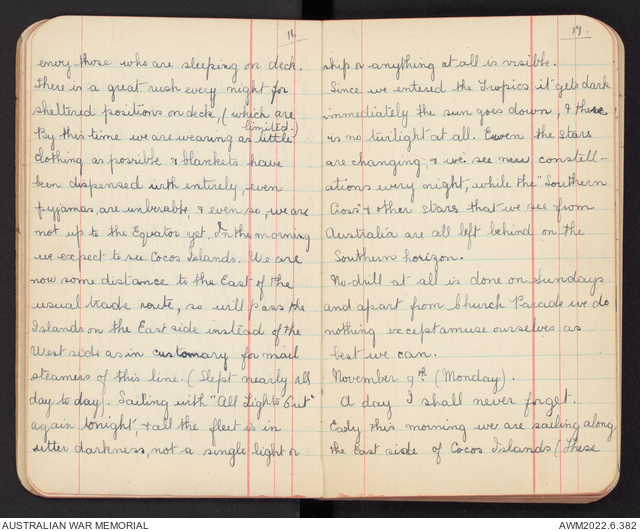 16
envy those who are sleeping on deck.
There is a great rush every night for
sheltered positions on deck, (which are
limited.)
By this time we are wearing as little
clothing as possible & blankets have
been dispensed with entirely, even
pyjamas, are unberable, & even so, we are
not up to the Equator yet, In the morning
we expect to see Cocos Islands. We are
now some distance to the East of the
usual trade route, so will pass the
Islands on the East side instead of the
West side as in customary for mail
steamers of this line. (Slept nearly all
day to day). Sailing with "All Lights Out"
again tonight, & all the fleet is in
utter darkness, not a single light or
17.
ship or anything at all is visible.
Since we entered the Tropics it gets dark
immediately the sun goes down, & there
is no twilight at all. Even the stars
are changing & we see new constell-
ations every night, while the "Southern
Cross" & other stars that we see from
Australia are all left behind on the
Southern horizon.
No drill at all is done on Sundays
and apart from Church Parade we do
nothing except amuse ourselves as
best we can.
November 9th (Monday).
A day I shall never forget.
Early this morning we are sailing along
the East side of Cocos Islands (These
AUSTRALIAN WAR MEMORIAL
AWM2022.6.382